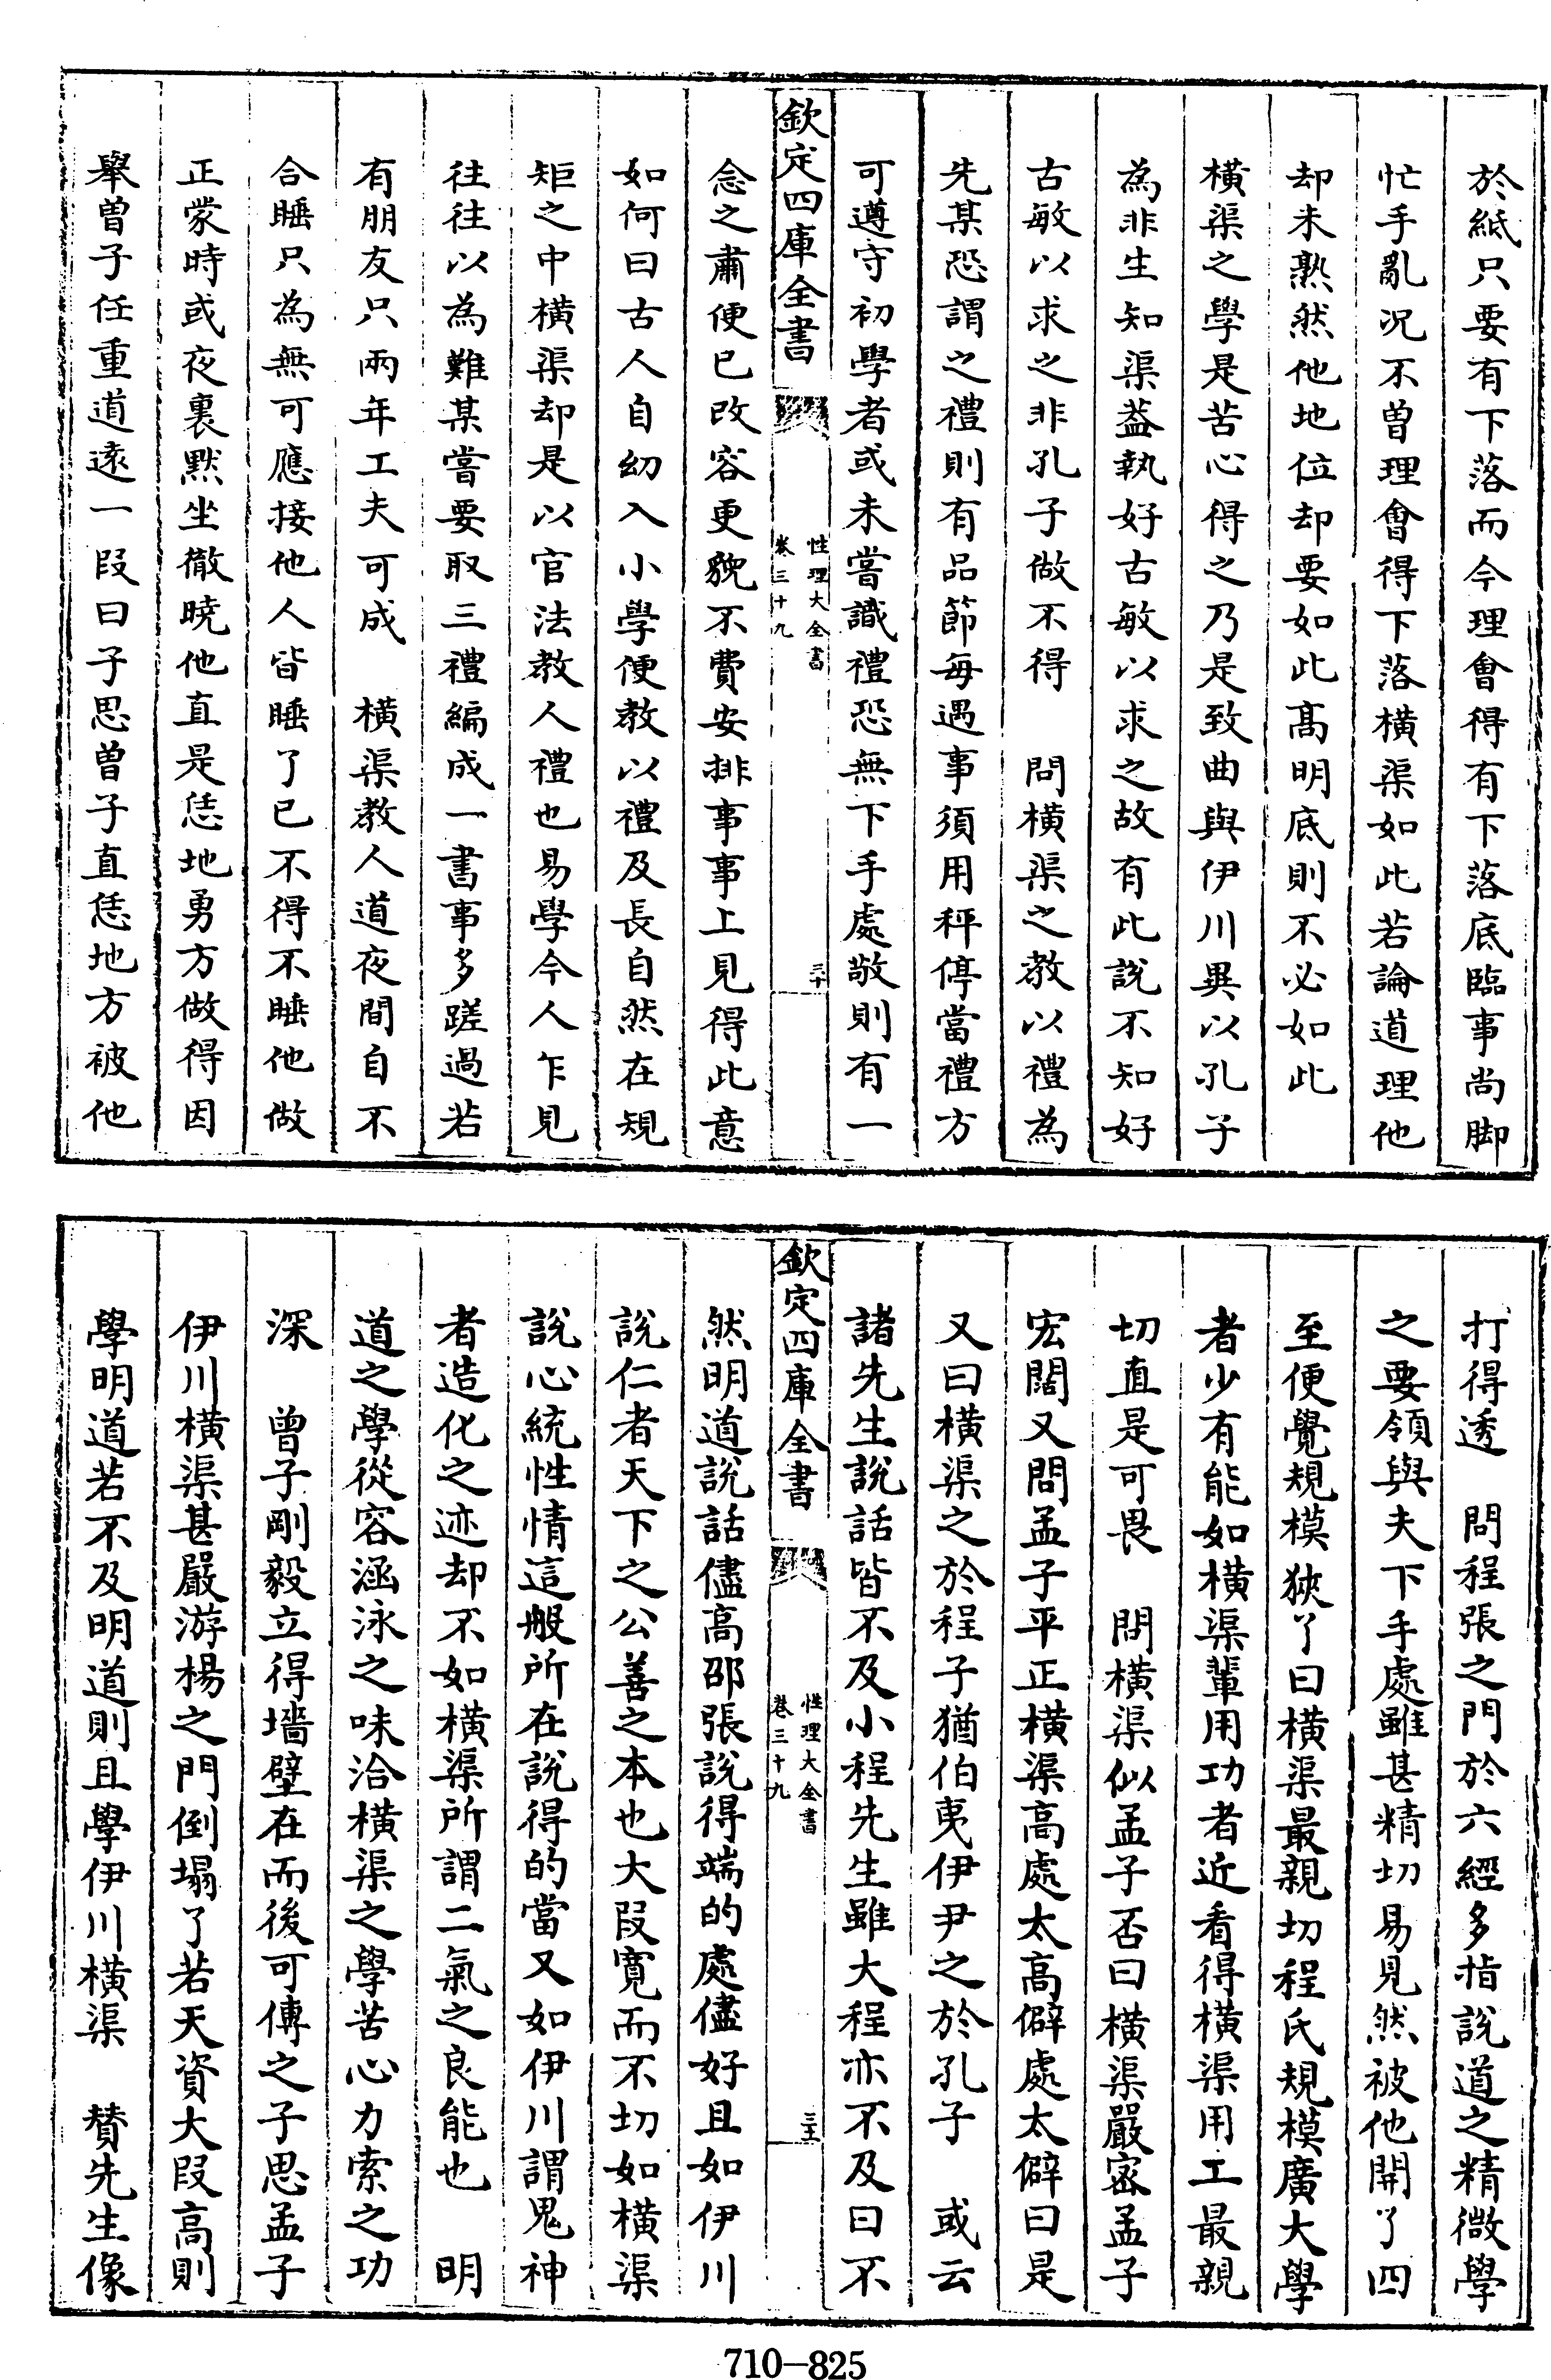 於紙只要有下落而今理會得有下落底臨事尚脚
忙手亂况不曽理㑹得下落横渠如此若論道理他
却未熟然他地位却要如此髙明底則不必如此
横渠之學是苦心得之乃是致曲與伊川異以孔子
為非生知渠葢執好古敏以求之故有此説不知好
古敏以求之非孔子做不得　問横渠之教以禮為
先某恐謂之禮則有品節每遇事須用秤停當禮方
可遵守初學者或未嘗識禮恐無下手處敬則有一
欽定四庫全書
性理大全書
卷三十九
三十
念之肅便已改容更貌不費安排事事上見得此意
如何曰古人自幼入小學便教以禮及長自然在規
矩之中横渠却是以官法教人禮也易學今人乍見
往往以為難某嘗要取三禮編成一書事多蹉過若
有朋友只兩年工夫可成　横渠教人道夜間自不
合睡只為無可應接他人皆睡了已不得不睡他做
正蒙時或夜裏黙坐徹曉他直是恁地勇方做得因
舉曽子任重道逺一段曰子思曽子直恁地方被他
打得透　問程張之門於六經多指説道之精微學
之要領與夫下手處雖甚精切易見然被他開了四
至便覺規模狹了曰横渠最親切程氏規模廣大學
者少有能如横渠輩用功者近看得横渠用工最親
切直是可畏　問横渠似孟子否曰横渠嚴密孟子
宏闊又問孟子平正横渠高處太高僻處太僻曰是
又曰横渠之於程子猶伯夷伊尹之於孔子　或云
諸先生説話皆不及小程先生雖大程亦不及曰不
欽定四庫全書
性理大全書
卷三十九
三十一
然明道説話儘高邵張説得端的處儘好且如伊川
説仁者天下之公善之本也大段寛而不切如横渠
説心統性情這般所在説得的當又如伊川謂鬼神
者造化之迹却不如横渠所謂二氣之良能也　明
道之學從容涵泳之味洽横渠之學苦心力索之功
深　曾子剛毅立得墻壁在而後可傳之子思孟子
伊川横渠甚嚴游楊之門倒塌了若天資大段高則
學明道若不及明道則且學伊川横渠　賛先生像
710-825